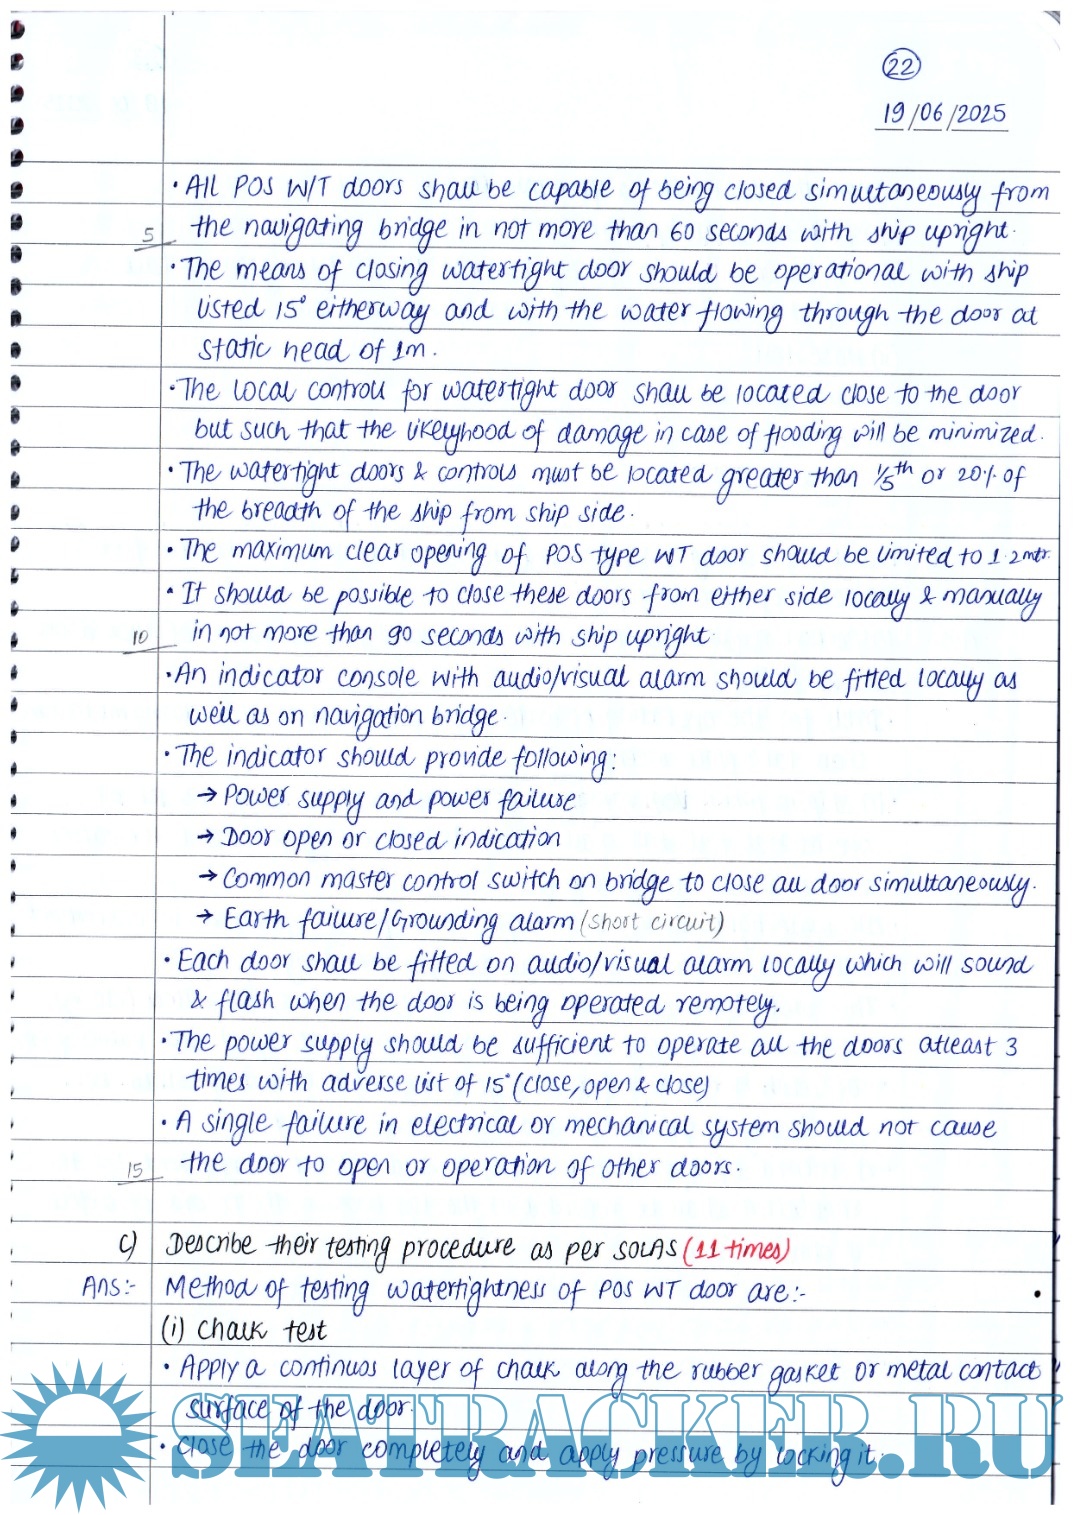 22
19/06/2025
• All POS W/T doors shall be capable of being closed simultaneously from
5 the navigating bridge in not more than 60 seconds with ship upright.
• The means of closing watertight door should be operational with ship
listed 15° eitherway and with the water flowing through the door at
static head of 1m.
• The local controll for watertight door shall be located close to the door
but such that the likelyhood of damage in case of flooding will be minimized.
• The watertight doors & controls must be located greater than 1/5th or 20% of
the breadth of the ship from ship side.
• The maximum clear opening of POS type WT door should be limited to 1.2mtr.
• It should be possible to close these doors from either side locally & manually
10 in not more than 90 seconds with ship upright
• An indicator console with audio/visual alarm should be fitted locally as
well as on navigation bridge.
• The indicator should provide following:
→ Power supply and power failure
→ Door open or closed indication
→ Common master control switch on bridge to close all door simultaneously.
→ Earth failure/Grounding alarm (short circuit)
• Each door shall be fitted on audio/visual alarm locally which will sound
& flash when the door is being operated remotely.
• The power supply should be sufficient to operate all the doors atleast 3
times with adverse list of 15° (close, open & close)
• A single failure in electrical or mechanical system should not cause
15 the door to open or operation of other doors.
c) Describe their testing procedure as per SOLAS (11 times)
Ans:- Method of testing watertightness of POS WT door are:-
(i) Chalk test
• Apply a continuos layer of chalk along the rubber gasket or metal contact
surface of the door.
• Close the door completely and apply pressure by locking it.
SEATRACKER.RU